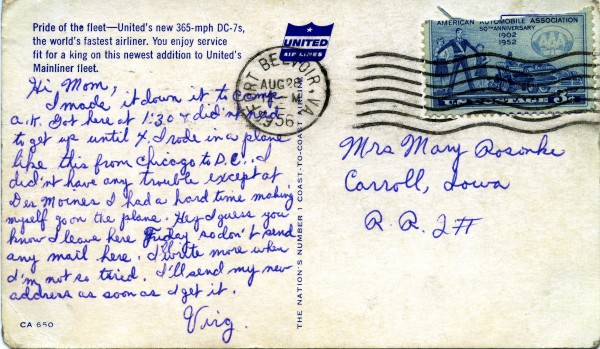 Pride of the fleet—United's new 365-mph DC-7s,
the world's fastest airliner. You enjoy service
fit for a king on this newest addition to United's
Mainliner fleet.
Hi Mom,
I made it down it to camp
a.k. Got here at 1:30 & did'nt need
to get up until 4. I rode in a plane
like this from Chicago to D.C.. I
did'nt have any trouble except at
Des Moines I had a hard time making
myself go on the plane. Hey I guess you
know I leave here Friday so don't send
any mail here. I'll write more when
I'm not so tired. I'll send my new
address as soon as I get it.
Virg.
CA 650
THE NATION'S NUMBER 1 COAST-TO-COAST AIRLINE
UNITED
AIR LINES
FORT BELVOIR, VA.
AUG 28
1956
AMERICAN AUTOMOBILE ASSOCIATION
50TH ANNIVERSARY
1902
1952
3¢
Mrs Mary Rosonke
Carroll, Iowa
R.R. 2#